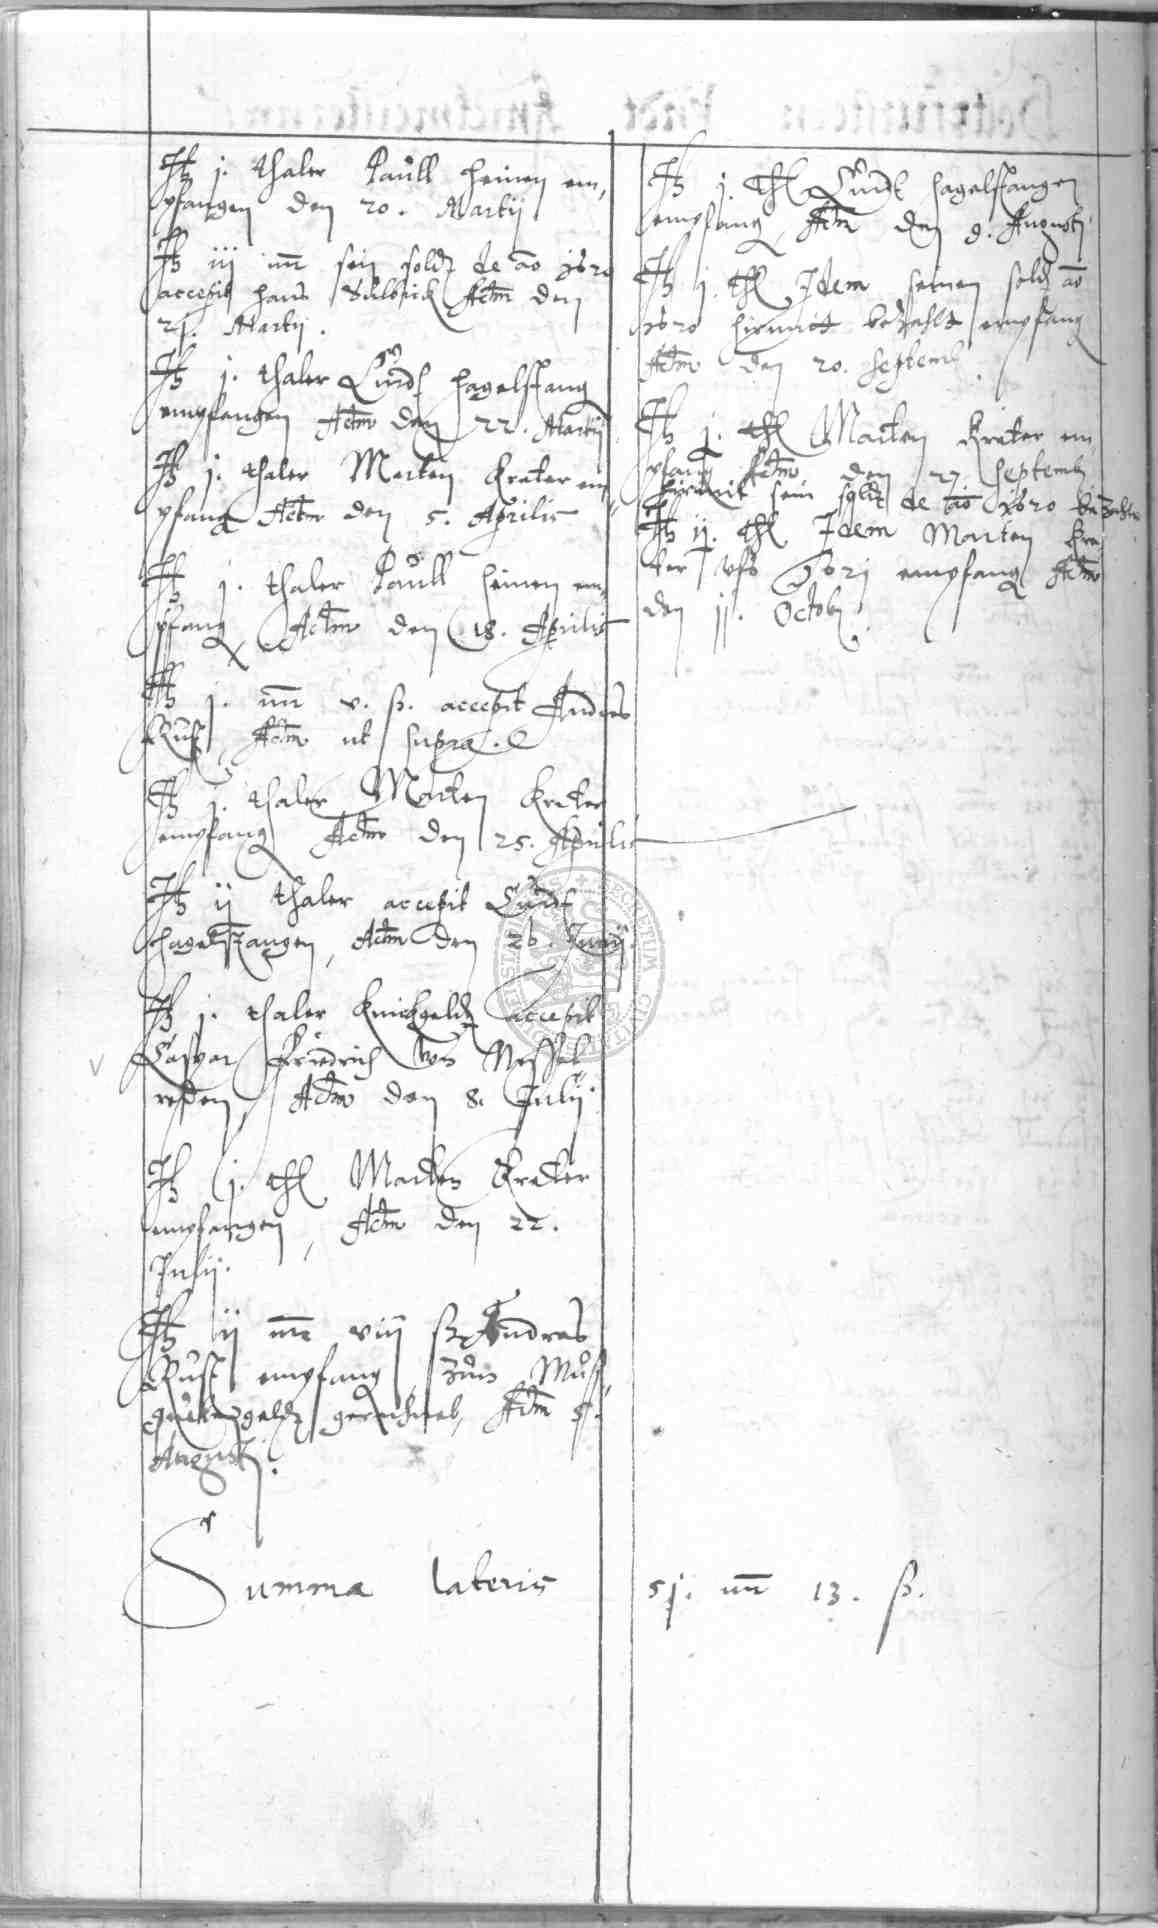 It j. thaler Paull heinen em,
pfangen den 20. Martij
It iij mr sein soldt de ao 1620
accepit hans Actm den
21. Martij.
It j. thaler Curdt hagelstang
empfangen Actm den 22. Martij
It j. thaler Marten Krater em
pfang Actm den 5. Aprilis
It j. thaler Paull heinen em,
pfang Actm den 18. Aprilis
It j. mr v. ß. accepit Andres
Rust, Actm ut supra.
It j. thaler Marten Krater
empfang Actm den 25. Aprilis
It ij thaler accepit Curdt
hagelstangen, Actm den 26. Junij.
It j. thaler Knichgeldt accepit
Caspar Friedrich von Messel
reden, Actm den 8. Julij
It j. thl Marten Krater
empfangen, Actm den 22.
Julij.
It ij mr viij ß Andres
Rust empfang, zum Muß,
queten geldt gerechnet, Actm 5.
Augusti.
It j. thl Curdt hagelstangen
empfang, Actm den 9. Augusti
It j. thl Idem seinen soldt ao
1620 hirmit bezahlt empfang
Actm den 20. Septemb.
It j. thl Marten Krater em
pfang Actm den 27. Septemb
hirmit sein soldt de ao 1620 bezahlt
It ij. thl Idem Marten Kra
ter vfs 1621 empfang Actm
den 11. Octob.
Summa lateris 51. mr 13. ß.